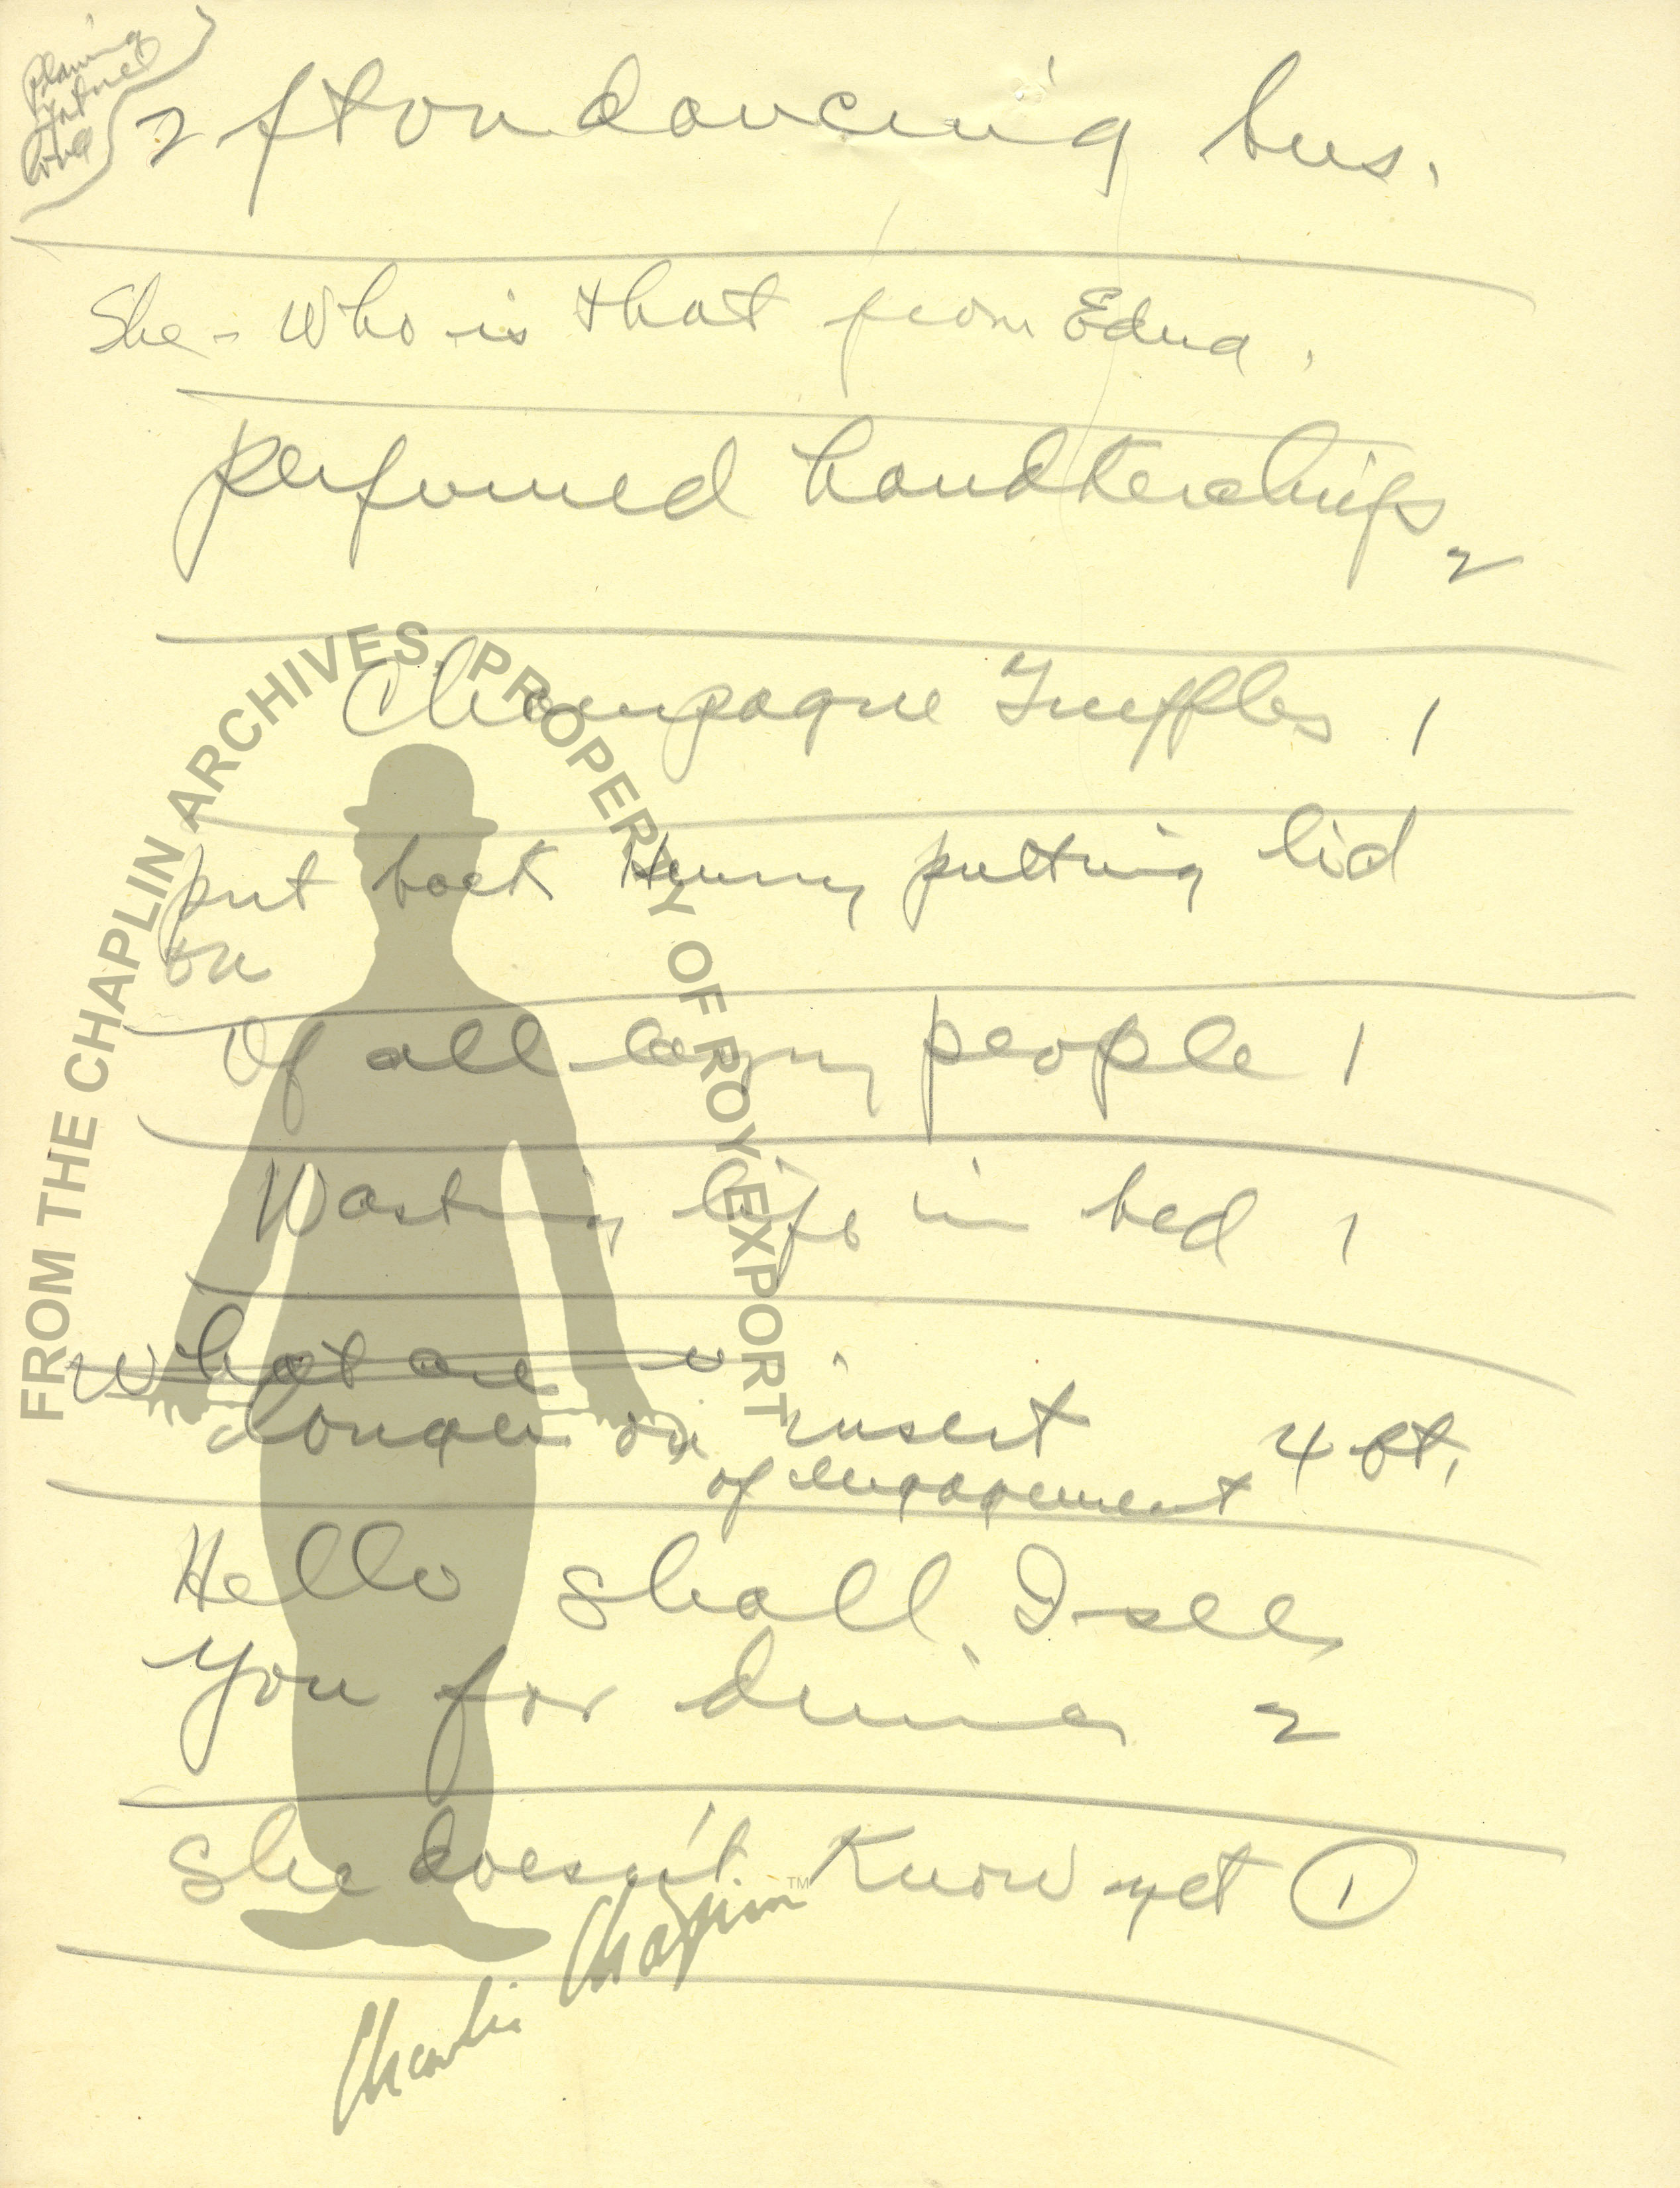 2 ft on dancing bus.
She - Who is that from Edna.
perfumed handkerchifs 2
Champagne Truffles 1
put back Henny putting lid
on
Of all lazy people 1
Wasting life in bed 1
What are u
longer on insert 4 ft.
of engagement
Hello shall I see
you for dinner 2
She doesn't know yet 1
FROM THE CHAPLIN ARCHIVES, PROPERTY OF ROY EXPORT
Charlie Chaplin™